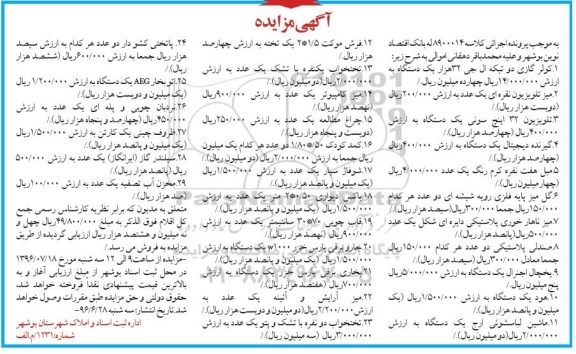 آگهی مزایده
به موجب پرونده اجرائی کلاسه ۸۹۰۰۰۱۴ له بانک اقتصاد
نوین بوشهر و علیه محمدباقر دهقانی اموالی به شرح زیر:
۱.کولر گازی دو تیکه ال جی ۳۲هزار یک دستگاه به
ارزش ۱۴/۰۰۰/۰۰۰ریال چهارده میلیون ریال/.
۲.میز تلویزیون نقره ای یک عدد به ارزش ۲۰۰/۰۰۰ ریال
(دویست هزار ریال)/.
۳.تلویزیون ۳۲ اینچ سونی یک دستگاه به ارزش
۴۰۰/۰۰۰ریال (چهارصد هزار ریال)/.
۴.گیرنده دیجیتال یک دستگاه به ارزش ۴۰۰/۰۰۰ریال
(چهارصد هزار ریال)/.
۵.مبل هفت نفره کرم رنگ یک عدد ۴/۰۰۰/۰۰۰ ریال
(چهارمیلیون ریال)/.
۶.گل میز پایه فلزی رویه شیشه ای دو عدد هر کدام
۱۵۰/۰۰۰ ریال جمعا ۳۰۰/۰۰۰ ریال(سیصد هزار ریال)/.
۷.میز ناهار خوری پلاستیکی دایره ای شکل یک عدد
۵۰۰/۰۰۰ریال(پانصد هزار ریال)/.
۸.صندلی پلاستیکی دو عدد هر کدام ۱۵۰/۰۰۰ریال
جمعا معادل ۳۰۰/۰۰۰ ریال (سیصد هزار ریال)/.
۹.یخچال اجنرال یک دستگاه به ارزش ۵/۰۰۰/۰۰۰ریال
پنج میلیون ریال/.
۱۰.هود یک دستگاه به ارزش ۱/۵۰۰/۰۰۰ ریال (یک
میلیون و پانصد هزار ریال)/.
۱۱.ماشین لباسشوئی ارج یک دستگاه به ارزش
۲/۰۰۰/۰۰۰ ریال(دو میلیون ریال)/.
۱۲.فرش موکت ۱/۵*۲ یک تخته به ارزش چهارصد
هزار ریال/.
۱۳.تختخواب یکنفره با تشک یک عدد به ارزش
۲/۰۰۰/۰۰۰ریال(دو میلیون ریال)/.
۱۴.میز کامپیوتر یک عدد به ارزش ۹۰۰/۰۰۰ریال
(نهصد هزار ریال)/.
۱۵.چراغ مطالعه یک عدد به ارزش ۲۵۰/۰۰۰ریال
(دویست و پنجاه هزار ریال)/.
۱۶.کمد کودک ۵۰*۱/۸۰ دو عدد هر کدام یک میلیون
ریال جمعا به ارزش ۲/۰۰۰/۰۰۰ریال (دو میلیون ریال)/.
۱۷.شوفاژ نیاز یک عدد به ارزش ۱/۵۰۰/۰۰۰ ریال
(یک میلیون و پانصد هزار ریال)/.
۱۸.باکس دیواری ۵۰*۲ متر یک عدد به ارزش
۱/۵۰۰/۰۰۰ریال (یک میلیون و پانصد هزار ریال)/.
۱۹.قاب چوبی ۷۰*۳۰ سانتیمتر یک عدد به ارزش
۹۰۰/۰۰۰ریال (نهصد هزار ریال)/.
۲۰.جارو برقی پارس خزر ۱۰۰۰w یک دستگاه به ارزش
۱/۵۰۰/۰۰۰ ریال (یک میلیون و پانصد هزار ریال)/.
۲۱.بخاری برقی پارس خزر یک دستگاه به ارزش
۷۰۰/۰۰۰ریال (هفتصد هزار ریال)/.
۲۲.میز آرایش و آئینه یک عدد به ارزش
۲/۰۰۰/۰۰۰ریال(دو میلیون ریال)/.
۲۳.تختخواب دو نفره با تشک و پتو یک عدد به ارزش
۳/۰۰۰/۰۰۰ریال (سه میلیون ریال)/.
۲۴. پاتختی کشو دار دو عدد هر کدام به ارزش سیصد
هزار ریال جمعا به ارزش ۶۰۰/۰۰۰ریال (ششصد هزار
ریال)/.
۲۵.اتو بخار AEG یک دستگاه به ارزش ۱/۲۰۰/۰۰۰ ریال
(یک میلیون و دویست هزار ریال)/.
۲۶.نردبان چوبی و پله ای یک عدد به ارزش
۴۵۰/۰۰۰ریال(چهارصد و پنجاه هزار ریال)/.
۲۷.ظروف چینی یک کارتن به ارزش ۱/۵۰۰/۰۰۰ریال
(یک میلیون و پانصد هزار ریال)/.
۲۸.سیلندر گاز (ایرانگاز) یک عدد به ارزش ۵۰۰/۰۰۰
ریال (پانصد هزار ریال)/.
۲۹.مخزن آب تصفیه یک عدد به ارزش ۱۰۰/۰۰۰ریال
(یکصد هزار ریال)/.
متعلق به مدیون که برابر نظریه کارشناس رسمی جمع
کل اقلام فوق الذکر به مبلغ ۴۹/۸۰۰/۰۰۰ریال چهل و
نه میلیون و هشتصد هزار ریال ارزیابی گردیده از طریق
مزایده به فروش می رسد.
مزایده از ساعت ۹ الی ۱۲ سه شنبه مورخ ۱۳۹۶/۰۷/۱۸
در محل ثبت اسناد بوشهر از مبلغ ارزیابی آغاز و به
بالاترین قیمت پیشنهادی نقدا فروخته خواهد شد،
حقوق دولتی و حق مزایده طبق مقررات وصول خواهد
شد.تاریخ انتشار: سه شنبه ۹۶/۶/۲۸-
اداره ثبت اسناد و املاک شهرستان بوشهر
شماره:۱۲۳۱/م الف